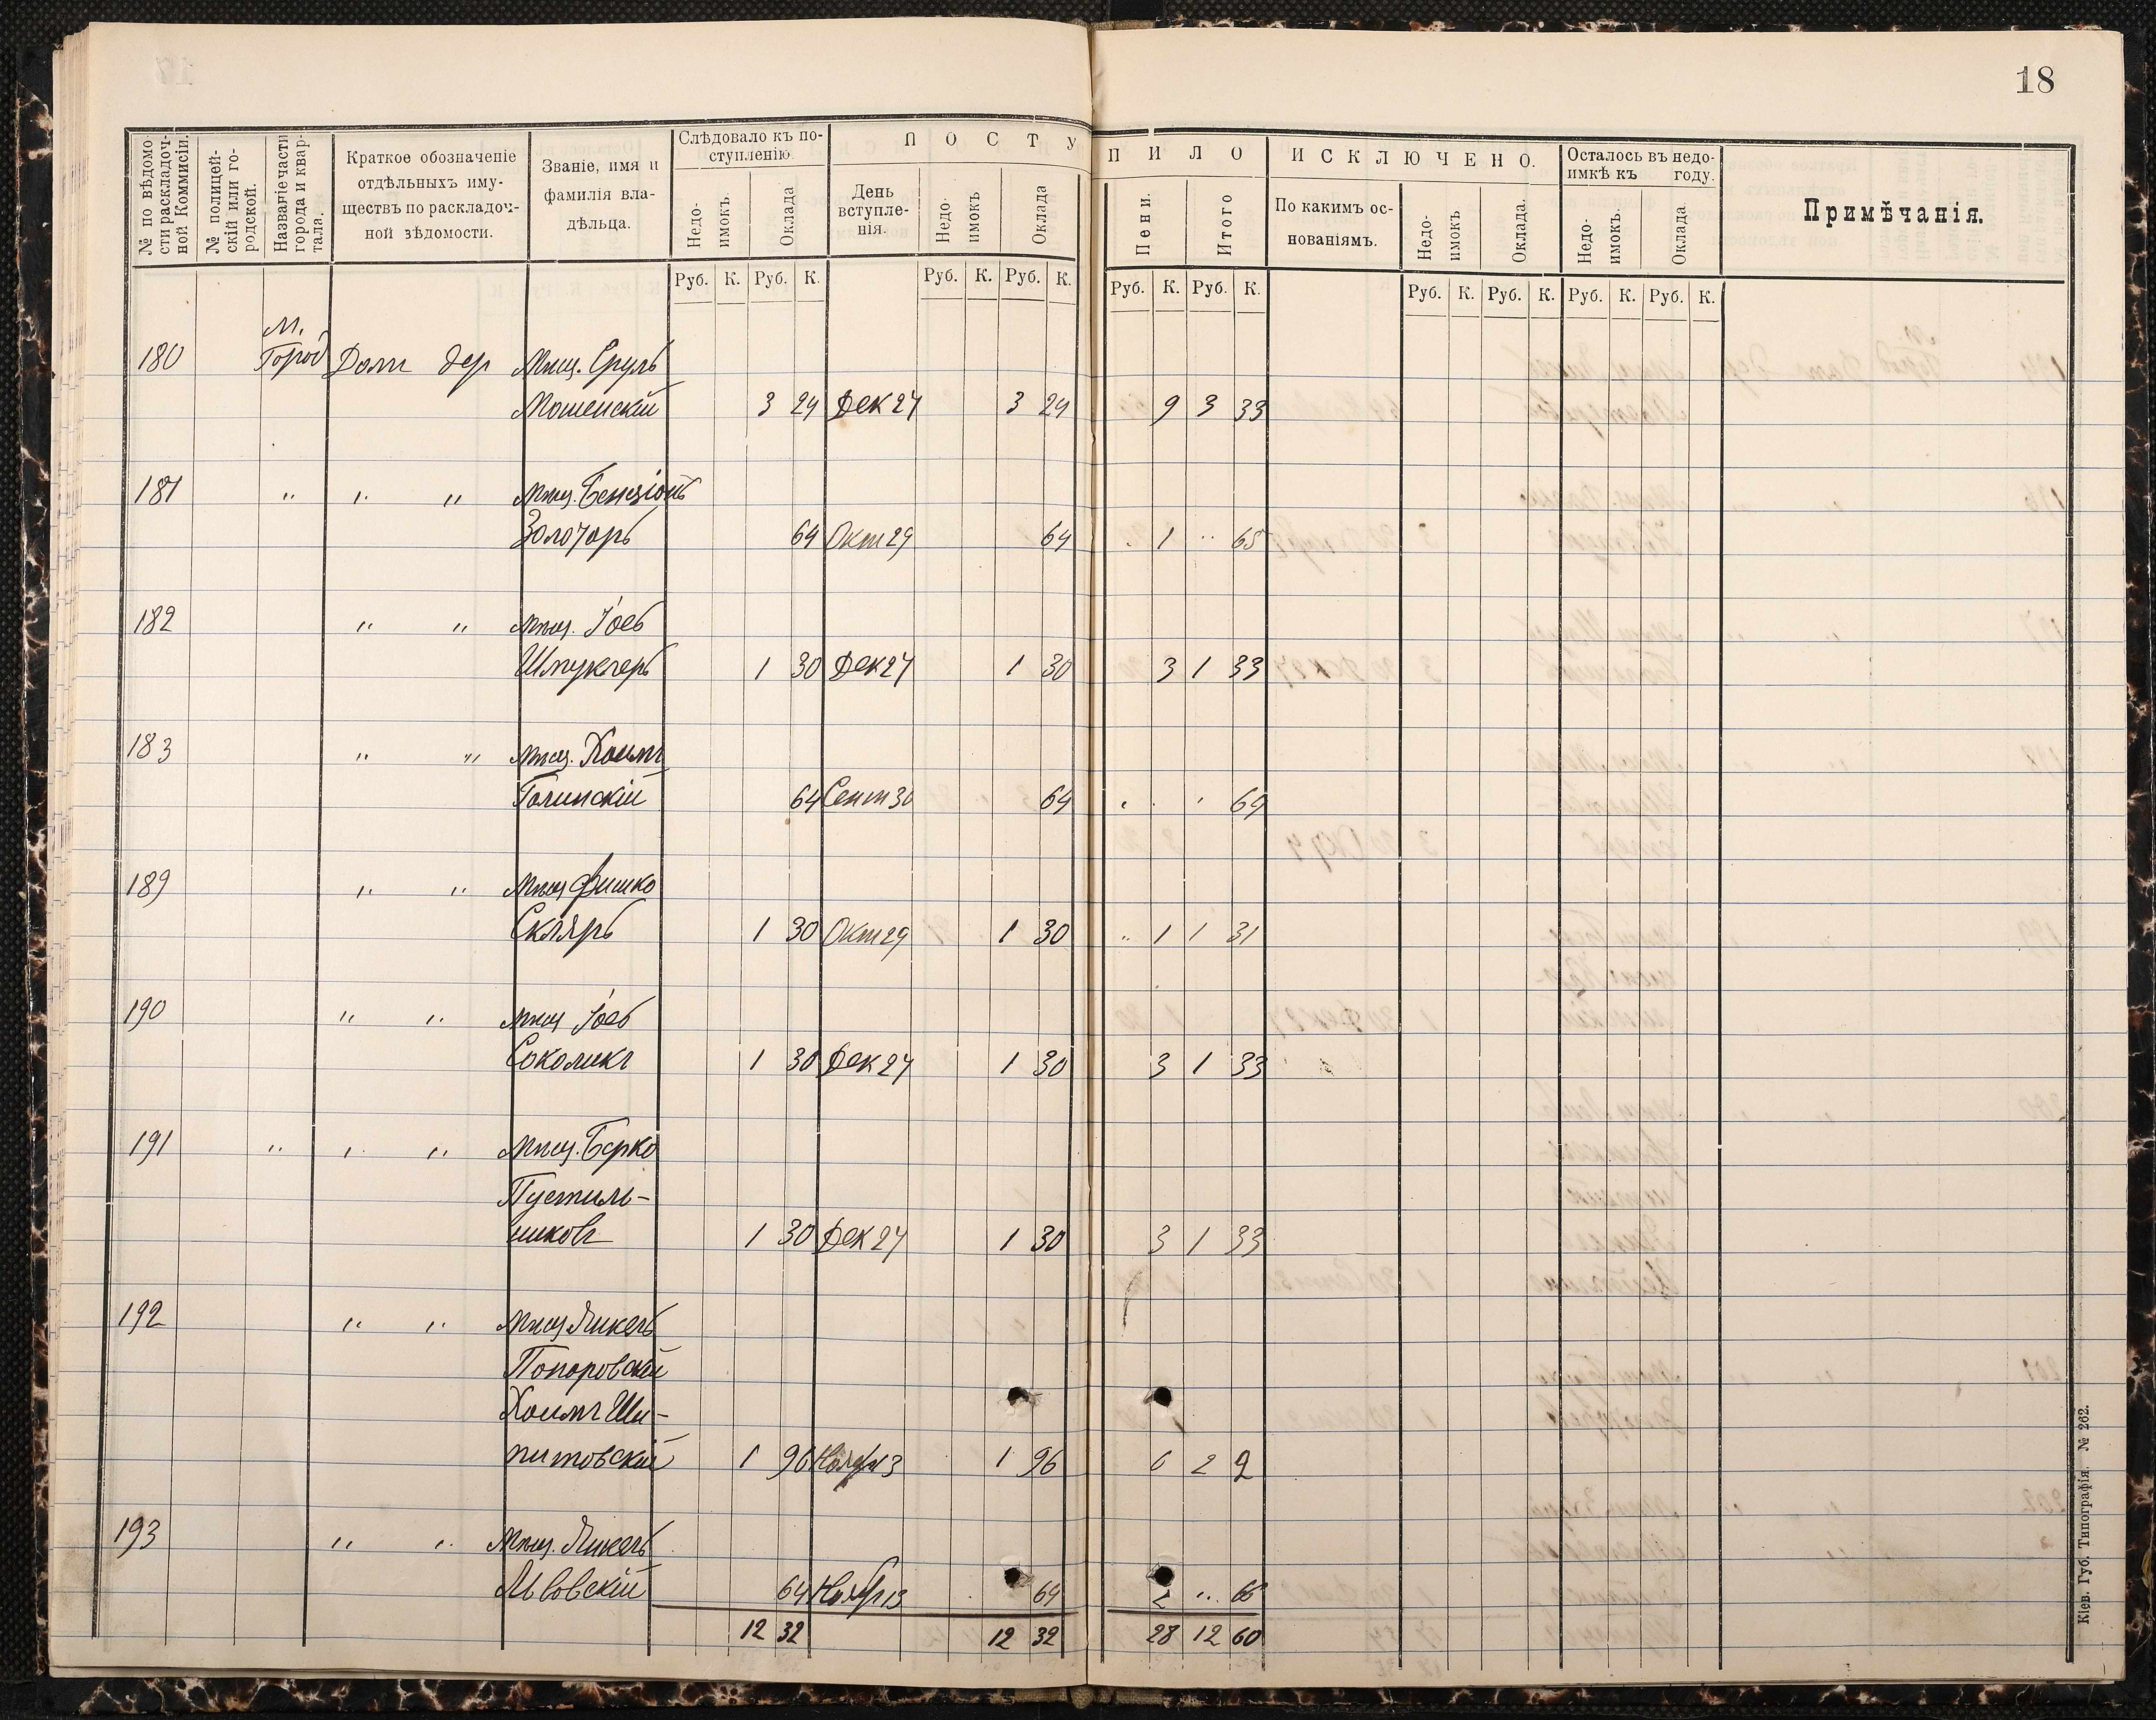 18
№ по вѣдомости раскладочной Коммисіи.
№ полицейскій или городской.
Названіе части города и квартала.
Краткое обозначеніе отдѣльныхъ имуществъ по раскладочной вѣдомости.
Званіе, имя и фамилія владѣльца.
Слѣдовало къ поступленію
Недоимокъ. Оклада
П О С Т У П И Л О
День вступленія. Недоимокъ Оклада Пени. Итого
И С К Л Ю Ч Е Н О.
По какимъ основаніямъ. Недоимокъ Оклада.
Осталось въ недоимкѣ къ году.
Недоимокъ. Оклада.
Примѣчанія.
Руб. К. Руб. К. Руб. К. Руб. К. Руб. К. Руб. К. Руб. К. Руб. К. Руб. К. Руб. К.
м.
180 Город Дом дер Мѣщ. Сруль
Мошенскій 3 24 Дек 27 3 24 9 3 33
181 " " " Мѣщ. Бенціонъ
Золотарь 64 Окт 29 64 " 1 " 65
182 " " Мѣщ. Іосъ
Шпуклеръ 1 30 Дек 27 1 30 3 1 33
183 " " Мѣщ. Хаимъ
Голинскій 64 Сент 30 64 " " " 64
189 " " Мѣщ Фишко
Скляръ 1 30 Окт 29 1 30 " 1 1 31
190 " " Мѣщ Іосъ
Соколикъ 1 30 Дек 27 1 30 3 1 33
191 " " " Мѣщ. Берко
Пустиль-
никовъ 1 30 Дек 27 1 30 3 1 33
192 " " Мѣщ Янкель
Топоровскій
Хаимъ Ши-
питовскій 1 96 Нояб 13 1 96 6 2 2
193 " " Мѣщ. Янкель
Львовскій 64 Нояб 13 64 2 " 66
12 32 12 32 28 12 60
Кіев. Губ. Типографія. № 262.